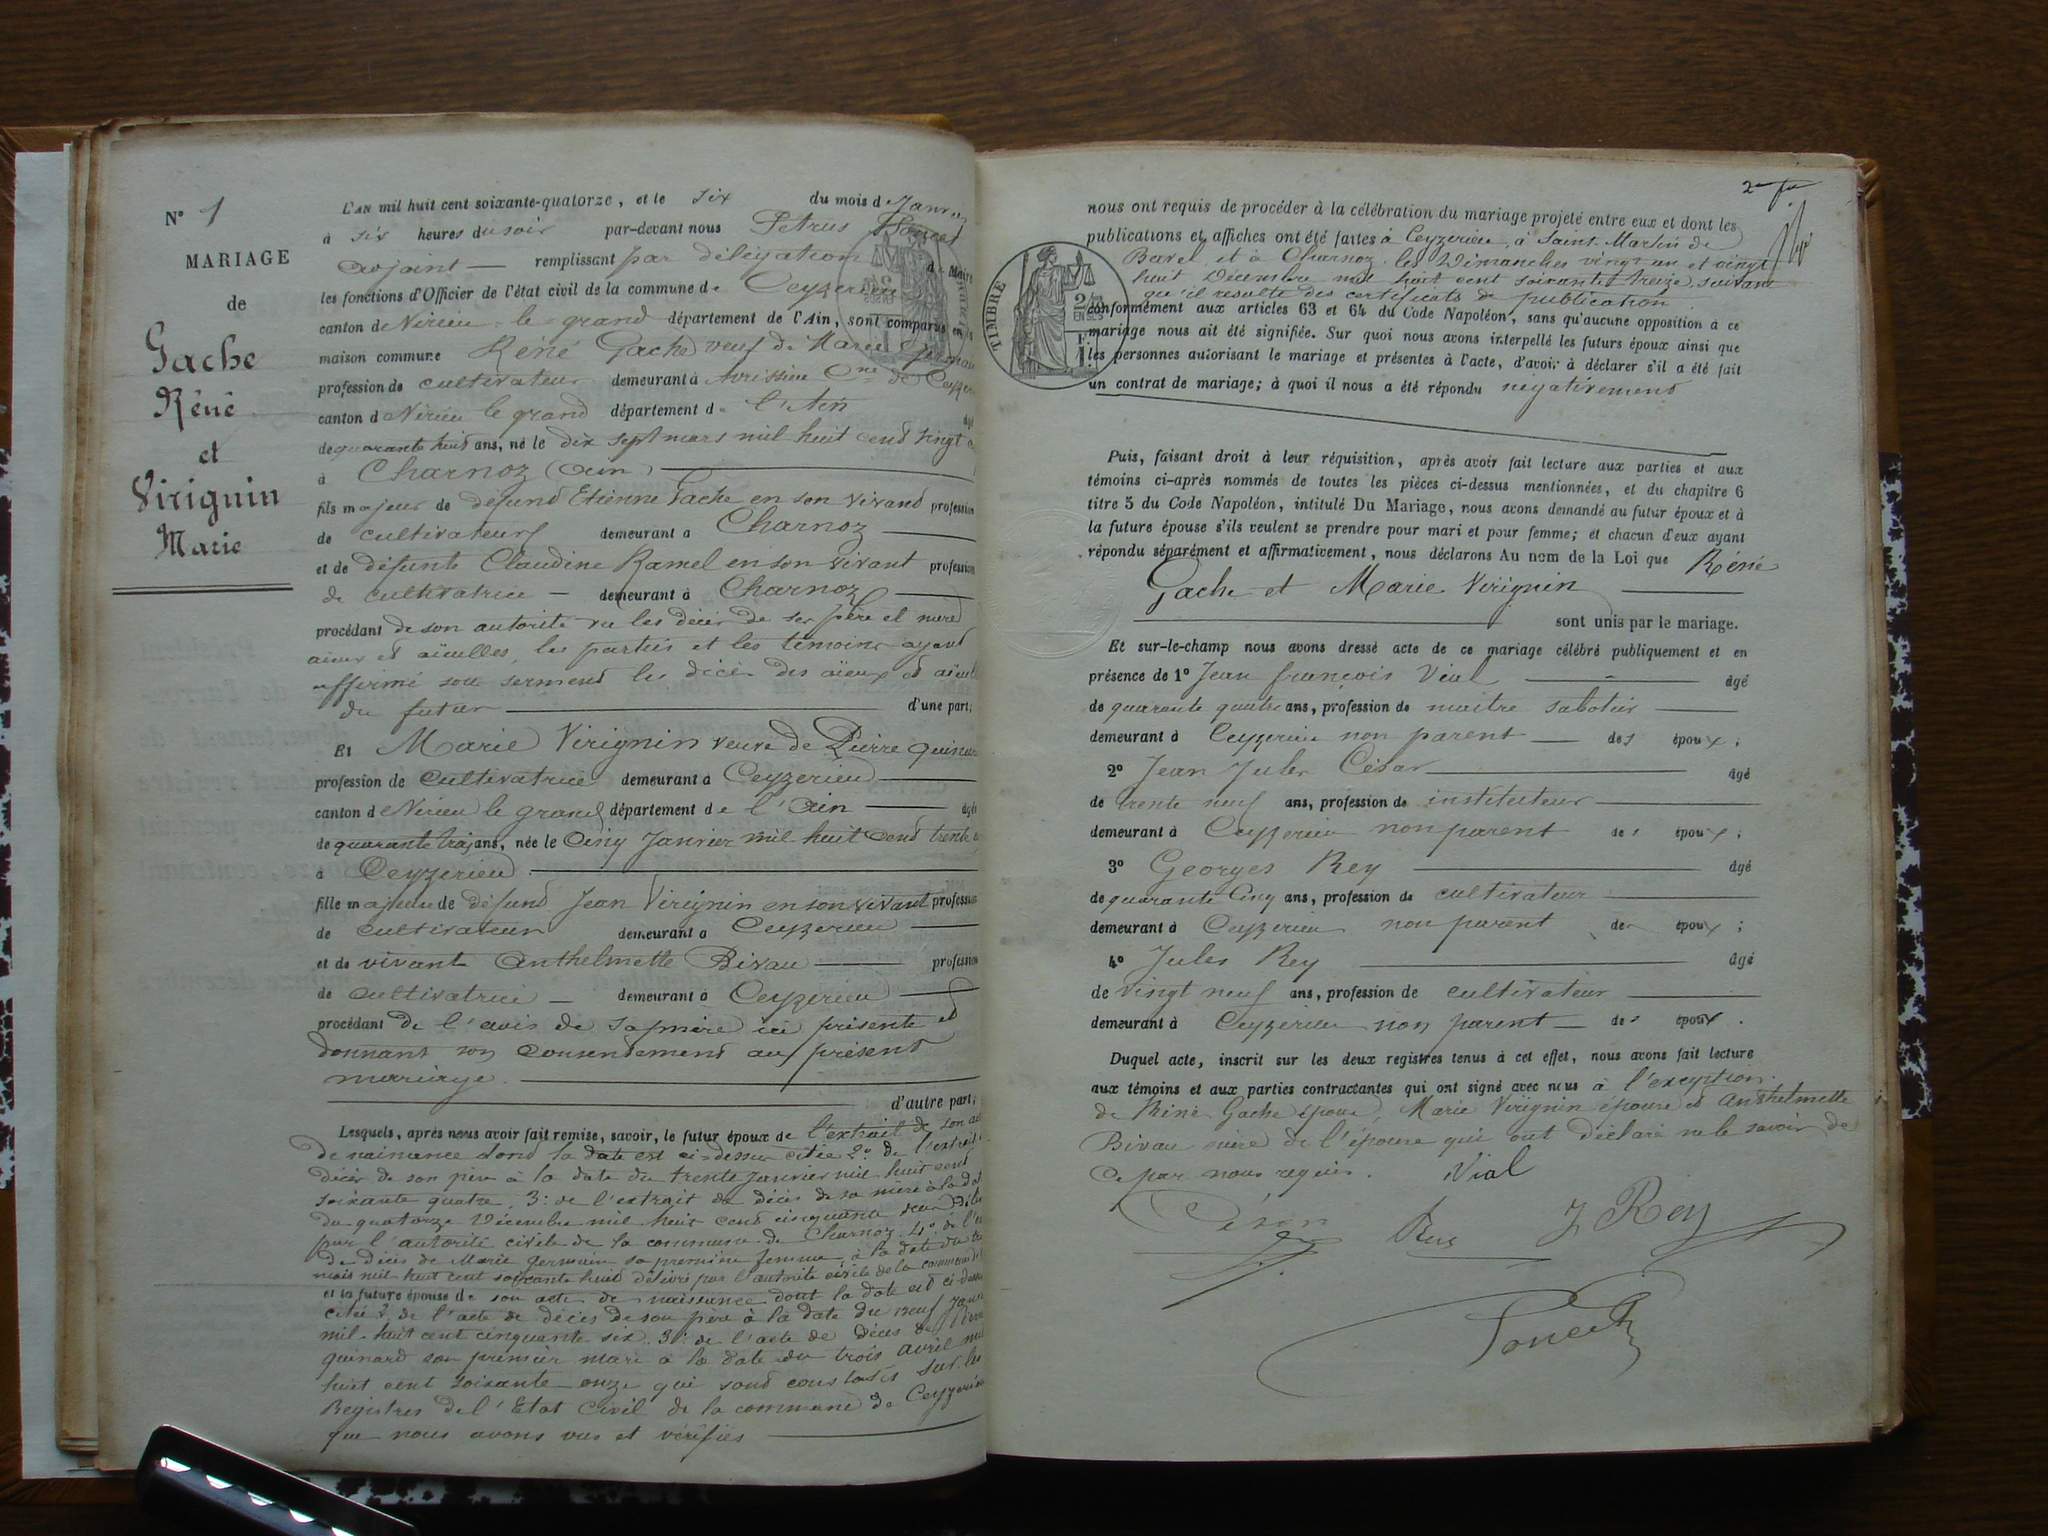 N° 1
MARIAGE
de
Gache
Réné
et
Virignin
Marie
L'AN mil huit cent soixante-quatorze, et le six du mois d
à six heures du soir par-devant nous Petrus
adjoint remplissant par délégation d Maire
les fonctions d'Officier de l'état civil de la commune de Ceyzerieu
canton de Virieu le grand département de l'Ain, sont comparus en la
maison commune Réné Gache veuf de Marie
profession de cultivateur demeurant à Avrissieu Cne de
canton d Virieu le grand département de l'Ain
de quarante huit ans, né le dix sept mars mil huit cend vingt
à Charnoz (Ain)
fils majeur de défund Etienne Gache en son vivand profession
de cultivateur demeurant a Charnoz
et de défunte Claudine Ramel en son vivant profession
de cultivatrice demeurant à Charnoz
procédant de son autorité vu les décès de ses père et mère
aïeux et aïeulles, les parties et les témoins ayant
affirmé sou sermend les décès des aïeux et
du futur d'une part;
Et Marie Virignin veuve de Pierre
profession de cultivatrice demeurant à Ceyzerieu
canton d Virieu le grand département de l'Ain âgée
de quarante trois ans, née le Cinq Janvier mil huit cend trente
à Ceyzerieu
fille majeure de défund Jean Virignin en son vivant profession
de cultivateur demeurant a Ceyzerieu
et de vivante Anthelmette Bivau profession
de cultivatrice demeurant à Ceyzerieu
procédant de l'avis de sa mère ici présente et
donnant son consentement au présent
mariage.
d'autre part;
Lesquels, après nous avoir fait remise, savoir, le futur époux de l'extrait de son
de naissance dond la date est ci-dessus citée 2° de l'extrait
décès de son père à la date du trente janvier mil huit cend
soixante quatre, 3° de l'extrait de décès de sa mère à la
du quatorze Décembre mil huit cend cinquante
par l'autorité civile de la commune de Charnoz 4° de
de décès de Marie Germain sa première femme à la date du
mil huit cent soixante huit délivré par l'autorité civile de la commune
et la future épouse de son acte de naissance dont la date est ci-dessus
citée 2° de l'acte de décès de son père à la date du neuf
mil huit cent cinquante six 3° de l'acte de décès de Pierre
quinard son premier mari à la date du trois avril mil
huit cent soixante onze qui sond constatés sur les
Registres de l'Etat Civil de la commune de Ceyzerieu
que nous avons vus et vérifiés
nous ont requis de procéder à la célébration du mariage projeté entre eux et dont les
publications et affiches ont été faites à Ceyzerieu, à Saint Martin de
Bavel et à Charnoz les Dimanches vingt un et vingt
huit Décembre mil huit cent soixante treize suivant
qu'il résulte des certificats de publication
TIMBRE
conformément aux articles 63 et 64 du Code Napoléon, sans qu'aucune opposition à ce
mariage nous ait été signifiée. Sur quoi nous avons interpellé les futurs époux ainsi que
les personnes autorisant le mariage et présentes à l'acte, d'avoir à déclarer s'il a été fait
un contrat de mariage; à quoi il nous a été répondu négativement
Puis, faisant droit à leur réquisition, après avoir fait lecture aux parties et aux
témoins ci-après nommés de toutes les pièces ci-dessus mentionnées, et du chapitre 6
titre 5 du Code Napoléon, intitulé Du Mariage, nous avons demandé au futur époux et à
la future épouse s'ils veulent se prendre pour mari et pour femme; et chacun d'eux ayant
répondu séparément et affirmativement, nous déclarons Au nom de la Loi que Réné
Gache et Marie Virignin
sont unis par le mariage.
Et sur-le-champ nous avons dressé acte de ce mariage célébré publiquement et en
présence de 1° Jean françois Vial âgé
de quarante quatre ans, profession de maitre sabotier
demeurant à Ceyzerieu non parent des époux;
2° Jean Jules César âgé
de trente neuf ans, profession de instituteur
demeurant à Ceyzerieu non parent des époux;
3° Georges Rey âgé
de quarante Cinq ans, profession de cultivateur
demeurant à Ceyzerieu non parent des époux;
4° Jules Rey âgé
de vingt neuf ans, profession de cultivateur
demeurant à Ceyzerieu non parent des époux.
Duquel acte, inscrit sur les deux registres tenus à cet effet, nous avons fait lecture
aux témoins et aux parties contractantes qui ont signé avec nous à l'exeption
de Réné Gache époux, Marie Virignin épouse et Anthelmette
Bivau mère de l'épouse qui ont déclaré ne le savoir de
ce par nous requis. Vial
César Rey J Rey